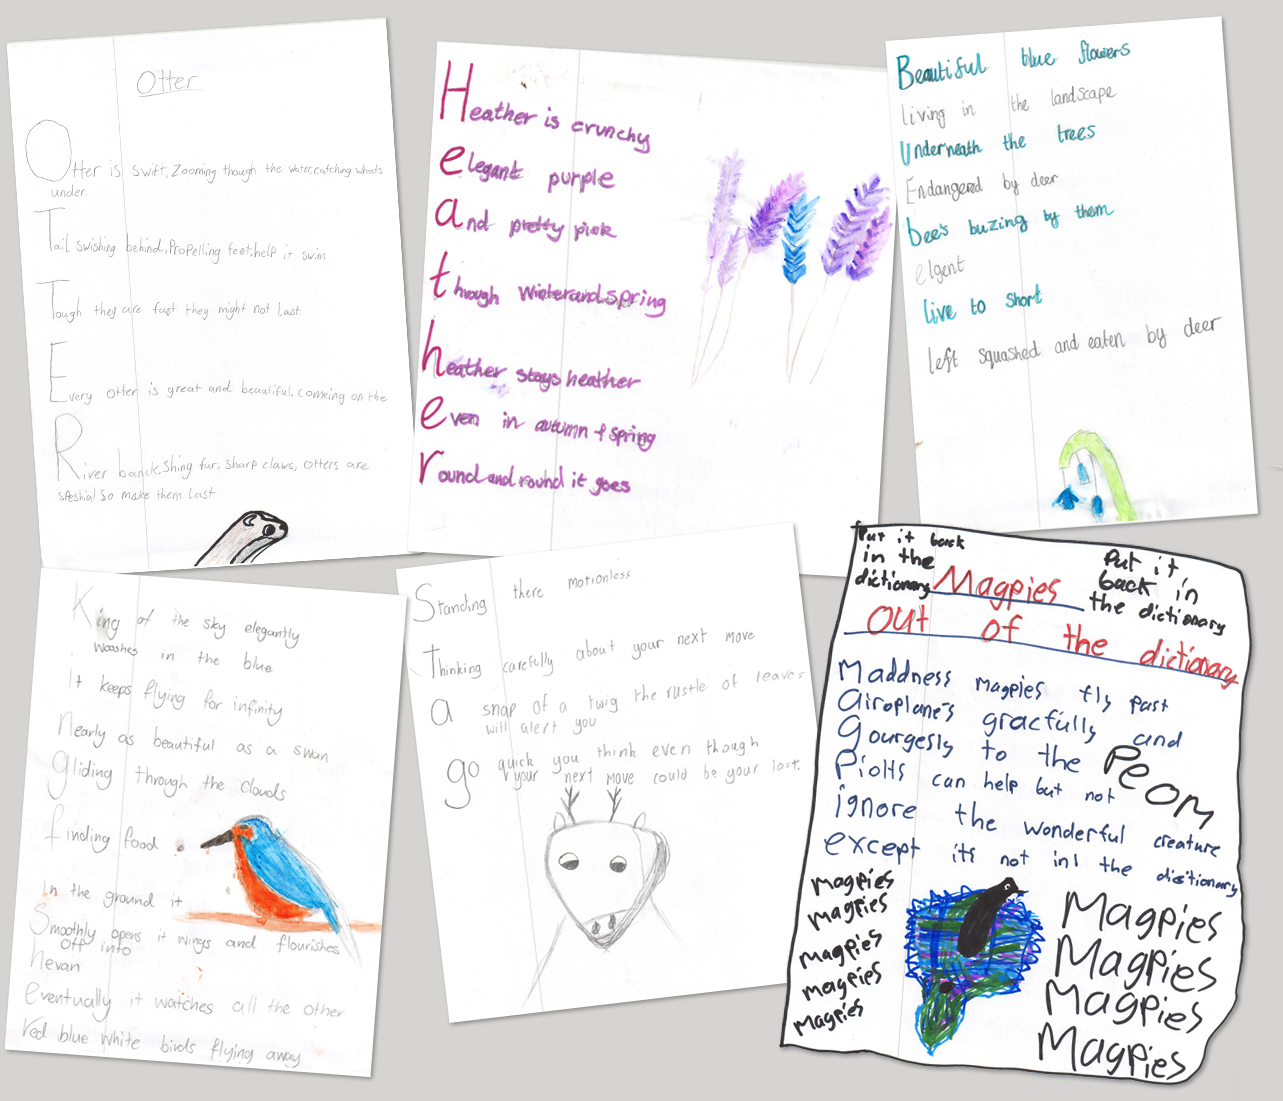 Otter
Otter is swift, Zooming though the water, catching whats
under.
Tail swishing behind, Propelling feet, help it swim
Tough they are fast they might not last
Every otter is great and beautiful. comeing on the
River banck, Shing fur, sharp claws, otters are
speshial so make them last
Heather is crunchy
elegant purple
and pretty pink
through Winter and spring
heather stays heather
even in autumn + spring
round and round it goes
Beautiful blue flowers
living in the landscape
Underneath the trees
Endangered by deer
bees buzing by them
elgent
live to short
left squashed and eaten by deer
King of the sky elegantly
Wooshes in the blue
It keeps flying for infinity
Nearly as beautiful as a swan
gliding through the clouds
finding food.
In the ground it
Smoothly opens it wings and flourishes
off into
hevan
eventually it watches all the other
red blue white birds flying away
Standing there motionless
Thinking carefully about your next move
a snap of a twig the rustle of leaves
will alert you
go quick you think even though
your next move could be your last.
Put it back
in the
dictionary
Put it
back in
the dictionary
Magpies
out of the dictionary
Maddness magpies fly past
Airoplane's gracfully and
Gourgesly to the
Piolts can help but not
ignore the wonderful creature
except it's not in the dictionary
Peom
Magpies
Magpies
Magpies
Magpies
Magpies
Magpies
Magpies
Magpies
Magpies